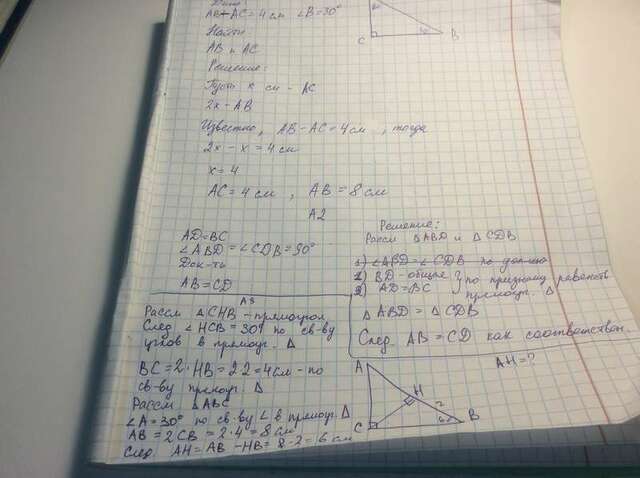 Дано:
AB-AC=4см ∠B=30°
Найти
AB и AC
Решение:
Пусть x см - AC
2x - AB
Известно, AB-AC=4см, тогда
2x-x=4см
x=4
AC=4см, AB=8см
C
30
B
A2
AD=BC
∠ABD=∠CDB=90°
Док-ть
AB=CD
Решение:
Рассм ΔABD и ΔCDB
1) ∠ABD=∠CDB по
2) BD-общие
3) AD=BC
} по признаку равенств
прямоуг. Δ
ΔABD=ΔCDB
След AB=CD как соответствен
A3
Рассм ΔCHB-прямоугол
След ∠HCB=30° по св-ву
углов в прямоуг. Δ
BC=2·HB=2·2=4см-по
св-ву прямоуг. Δ
Рассм ΔABC
∠A=30° по св-ву ∠ в прямоуг. Δ
AB=2CB=2·4=8см
След AH=AB-HB=8-2=6см
AH=?
A
H
2
60
C
B